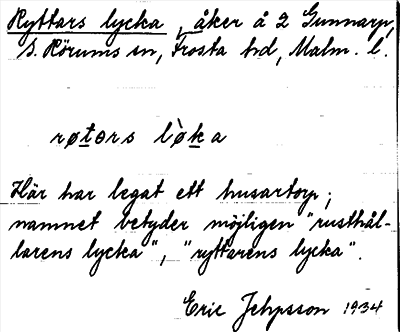 Ryttars lycka, åker å 2 Gunnarp,
S. Rörums sn, Frosta hd, Malm. l.
røtərs lø̀ka
Här har legat ett husartorp;
namnet betyder möjligen "rusthål-
larens lycka", "ryttarens lycka".
Eric Jehpsson 1934